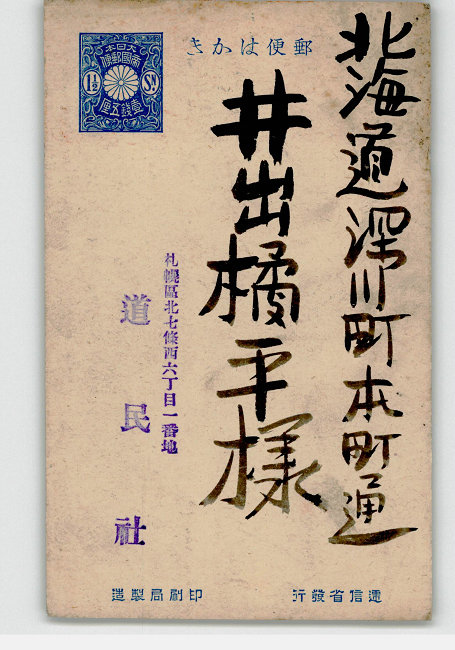 郵便はかき
大日本
帝國郵便
1½
Sⁿ
壹錢五厘
北海道深川町本町通
井出橘平様
札幌區北七條西六丁目一番地
道民社
遞信省發行
印刷局製造